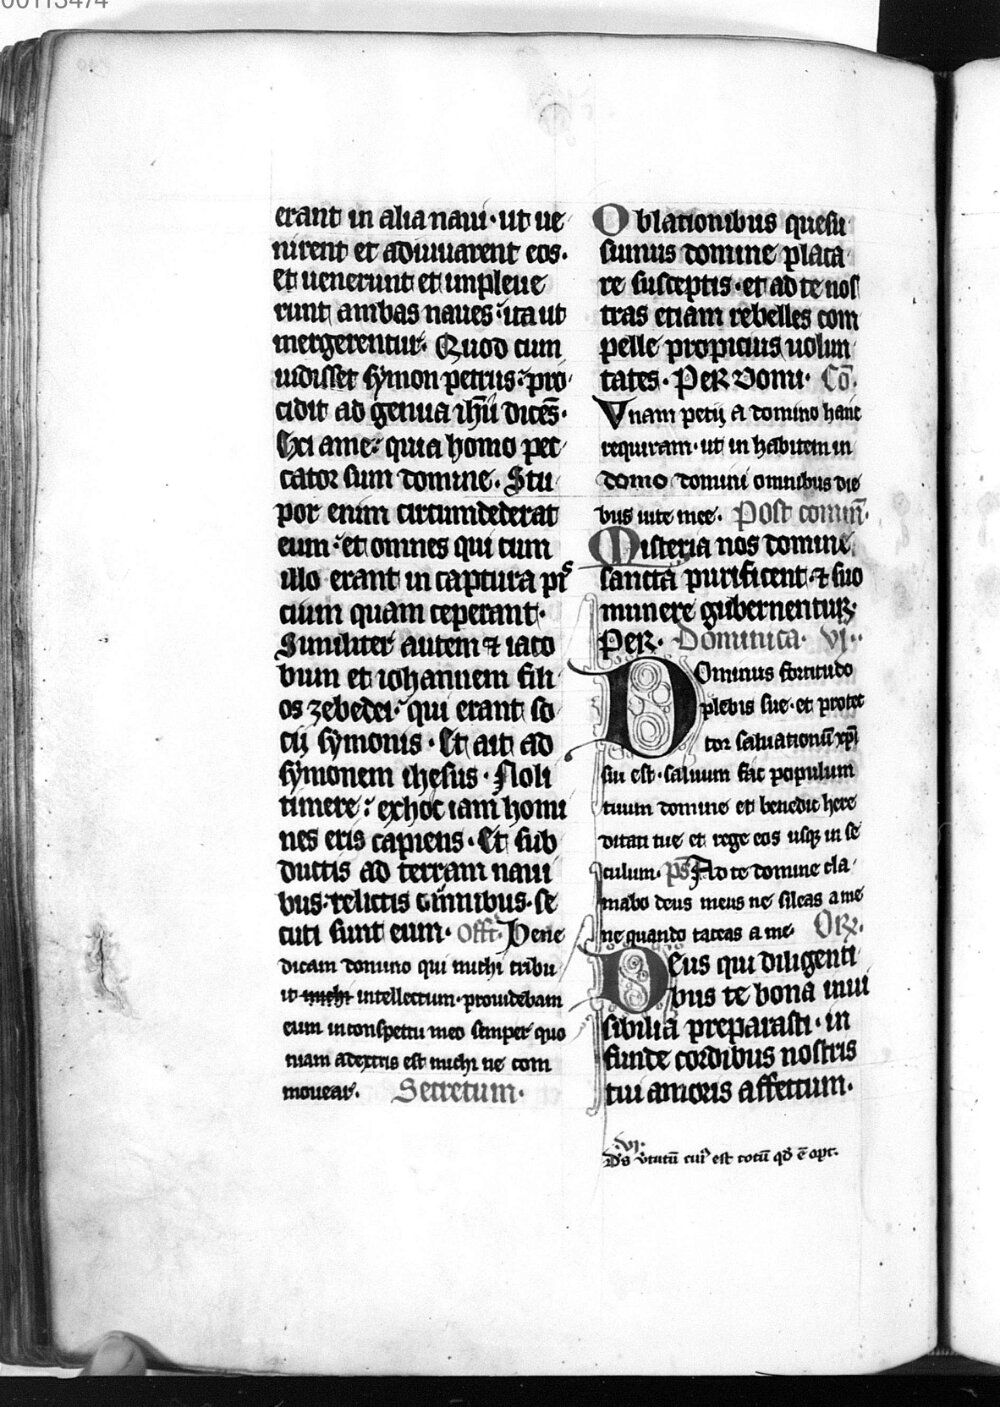 00113474
erant in alia naui · ut ue
nirent et adiuuarent eos ·
et uenerunt et impleue
runt ambas naues : ita ut
mergerentur · Quod cum
uidisset symon petrus : pro
cidit ad genua ihu̅ dice̅s ·
Exi a me : quia homo pec
cator sum domine · Stu
por enim circumdederat
eum : et omnes qui cum
illo erant in captura pis
cium quam ceperant ·
Similiter autem ⁊ iaco
bum et iohannem fili
os zebedei : qui erant so
cij symonis · Et ait ad
symonem ihesus · Noli
timere : ex hoc iam homi
nes eris capiens · Et sub
ductis ad terram naui
bus · relictis omnibus · se
cuti sunt eum · Offt Bene
dicam domino qui michi tribu
it michi intellectum · prouidebam
eum in conspectu meo semper quo
niam a dextris est michi ne com
mouear · Secretum ·
Oblationibus quesu
sumus domine placa
re susceptis · et ad te nos
tras etiam rebelles com
pelle propicius uolun
tates · Per domi · Co̅ ·
Vnam petij a domino hanc
requiram · ut in habitem in
domo domini omnibus die
bus uite mee · Post comun̅ ·
Misteria nos domine
sancta purificent ⁊ suo
munere gubernentur ·
Per · Dominica · vi ·
Dominus fortitudo
plebis sue · et protec
tor saluationu̅ xp̅i
sui est · saluum fac populum
tuum domine et benedic here
ditati tue et rege eos usq in se
culum · p̅s Ad te domine cla
mabo deus meus ne sileas a me
ne quando taceas a me · Or̅ ·
Deus qui diligenti
bus te bona inui
sibilia preparasti · in
funde cordibus nostris
tui amoris affectum ·
· vi ·
D̅s v̾tutu̅ cui᾽ est totu̅ qd̅ e̅ opt ·